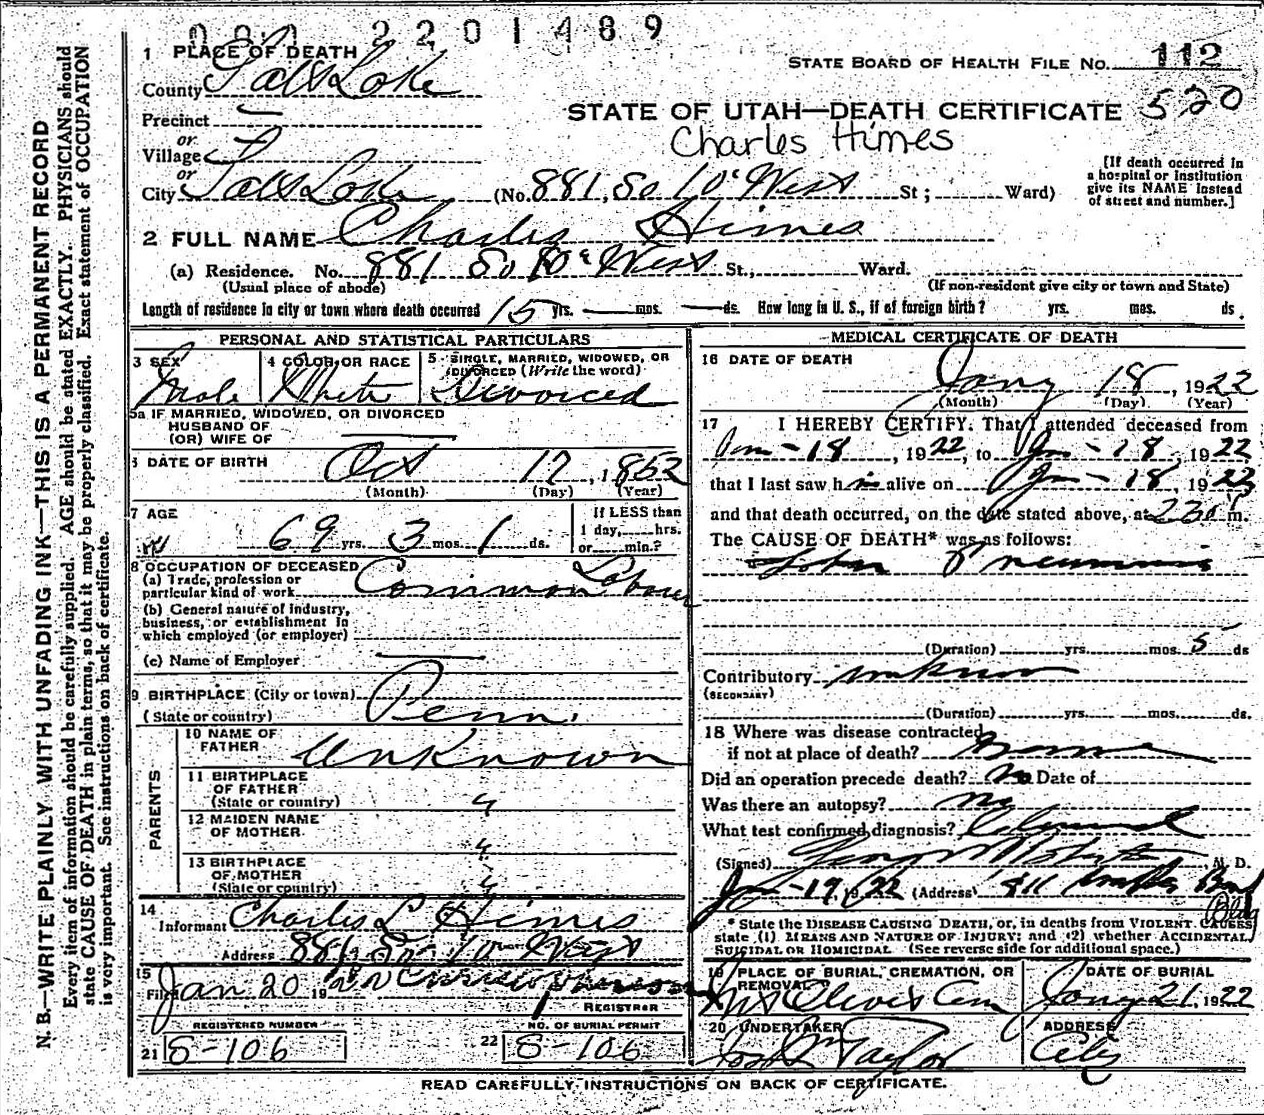 2201489
1 PLACE OF DEATH
STATE BOARD OF HEALTH FILE No. 112
County Salt Lake
STATE OF UTAH—DEATH CERTIFICATE 520
Precinct
Charles Himes
or
Village
or
City Salt Lake (No. 881 So 10th West St; Ward)
[If death occurred in
a hospital or institution
give its NAME instead
of street and number.]
2 FULL NAME Charles Himes
(a) Residence. No. 881 So 10th West St., Ward.
(Usual place of abode) (If non-resident give city or town and State)
Length of residence in city or town where death occurred 15 yrs. — mos. — ds. How long in U. S., if of foreign birth? yrs. mos. ds.
PERSONAL AND STATISTICAL PARTICULARS
3 SEX Male
4 COLOR OR RACE White
5 SINGLE, MARRIED, WIDOWED, OR
DIVORCED (Write the word)
Divorced
5a IF MARRIED, WIDOWED, OR DIVORCED
HUSBAND OF
(OR) WIFE OF —
6 DATE OF BIRTH Oct 17, 1852
(Month) (Day) (Year)
7 AGE 69 yrs. 3 mos. 1 ds.
If LESS than
1 day, hrs.
or min.?
8 OCCUPATION OF DECEASED
(a) Trade, profession or
particular kind of work Common Labour
(b) General nature of industry,
business, or establishment in
which employed (or employer)
(c) Name of Employer —
9 BIRTHPLACE (City or town)
(State or country) Penn.
PARENTS
10 NAME OF
FATHER Unknown
11 BIRTHPLACE
OF FATHER
(State or country) "
12 MAIDEN NAME
OF MOTHER "
13 BIRTHPLACE
OF MOTHER
(State or country) "
14
Informant Charles L Himes
Address 881 So 10 West
15
Filed Jan 20 192
REGISTRAR
REGISTERED NUMBER
21 S-106
NO. OF BURIAL PERMIT
22 S-106
MEDICAL CERTIFICATE OF DEATH
16 DATE OF DEATH
Jany 18, 1922
(Month) (Day) (Year)
17 I HEREBY CERTIFY. That I attended deceased from
Jan-18, 1922, to Jan-18, 1922
that I last saw him alive on Jan-18 1922
and that death occurred, on the date stated above, at 230 P m.
The CAUSE OF DEATH* was as follows:
Lobar Pneumonia
(Duration) yrs. mos. 5 ds
Contributory unknown
(SECONDARY)
(Duration) yrs. mos. ds.
18 Where was disease contracted
if not at place of death?
Did an operation precede death? No Date of
Was there an autopsy? no
What test confirmed diagnosis? Clinical
(Signed) M. D.
Jan-19, 1922 (Address) Bank
Bldg
* State the DISEASE CAUSING DEATH, or, in deaths from VIOLENT CAUSES
state (1) MEANS AND NATURE OF INJURY; and (2) whether ACCIDENTAL,
SUICIDAL OR HOMICIDAL (See reverse side for additional space.)
19 PLACE OF BURIAL, CREMATION, OR
REMOVAL
Mt Olivet Cem
DATE OF BURIAL
Jany 21, 1922
20 UNDERTAKER
Jos Wm Taylor
ADDRESS
City
READ CAREFULLY INSTRUCTIONS ON BACK OF CERTIFICATE.
N. B.—WRITE PLAINLY WITH UNFADING INK—THIS IS A PERMANENT RECORD
Every item of information should be carefully supplied. AGE should be stated EXACTLY. PHYSICIANS should
state CAUSE OF DEATH in plain terms, so that it may be properly classified. Exact statement of OCCUPATION
is very important. See instructions on back of certificate.